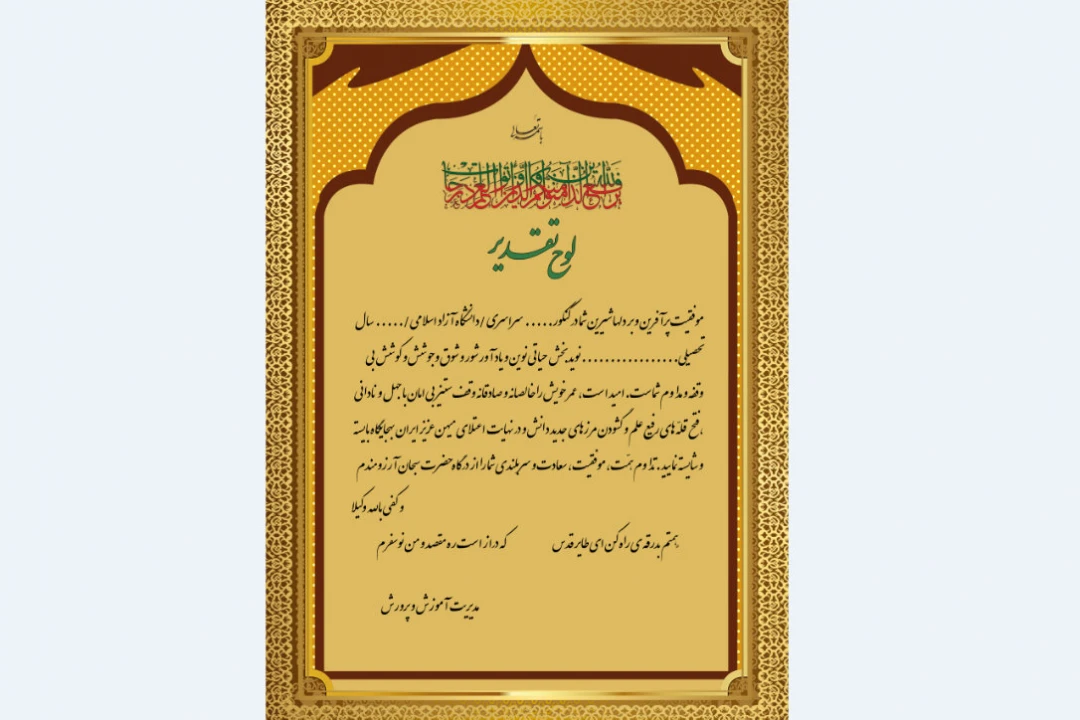 باسمه تعالی
لوح تقدیر
موفقیت پرآفرین و بر دلها شیرین شما در کنکور..... سراسری / دانشگاه آزاد اسلامی /..... سال
تحصیلی................. نوید بخش حیاتی نوین و یادآور شور و شوق و جوشش و کوشش بی
وقفه و مداوم شماست. امید است، عمر خویش را خالصانه و صادقانه وقف ستیز بی امان با جهل و نادانی
،فتح قله های رفیع علم و گشودن مرزهای جدید دانش و در نهایت اعتلای میهن عزیز ایران بهجایگاه بایسته
و شایسته نمایید. تداوم همّت، موفقیت، سعادت و سربلندی شما را از درگاه حضرت سبحان آرزومندم
و کفی بالله وکیلا
همتم بدرقه ی راه کن ای طایر قدس که دراز است ره مقصد و من نوسفرم
مدیریت آموزش و پرورش